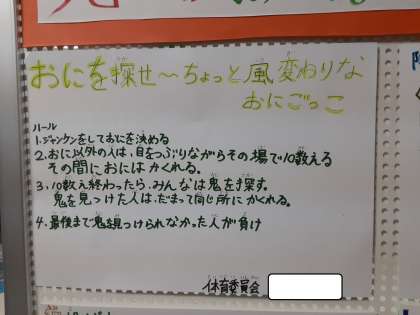 おにを探せ～ちょっと風変わりな
おにごっこ
ルール
1.ジャンケンをしておにを決める
2.おに以外の人は、目をつぶりながらその場で10数える
その間におにはかくれる。
3.10数え終わったら、みんなは鬼を探す。
鬼を見つけた人は、だまって同じ所にかくれる。
4.最後まで鬼を見つけられなかった人が負け
体育委員会